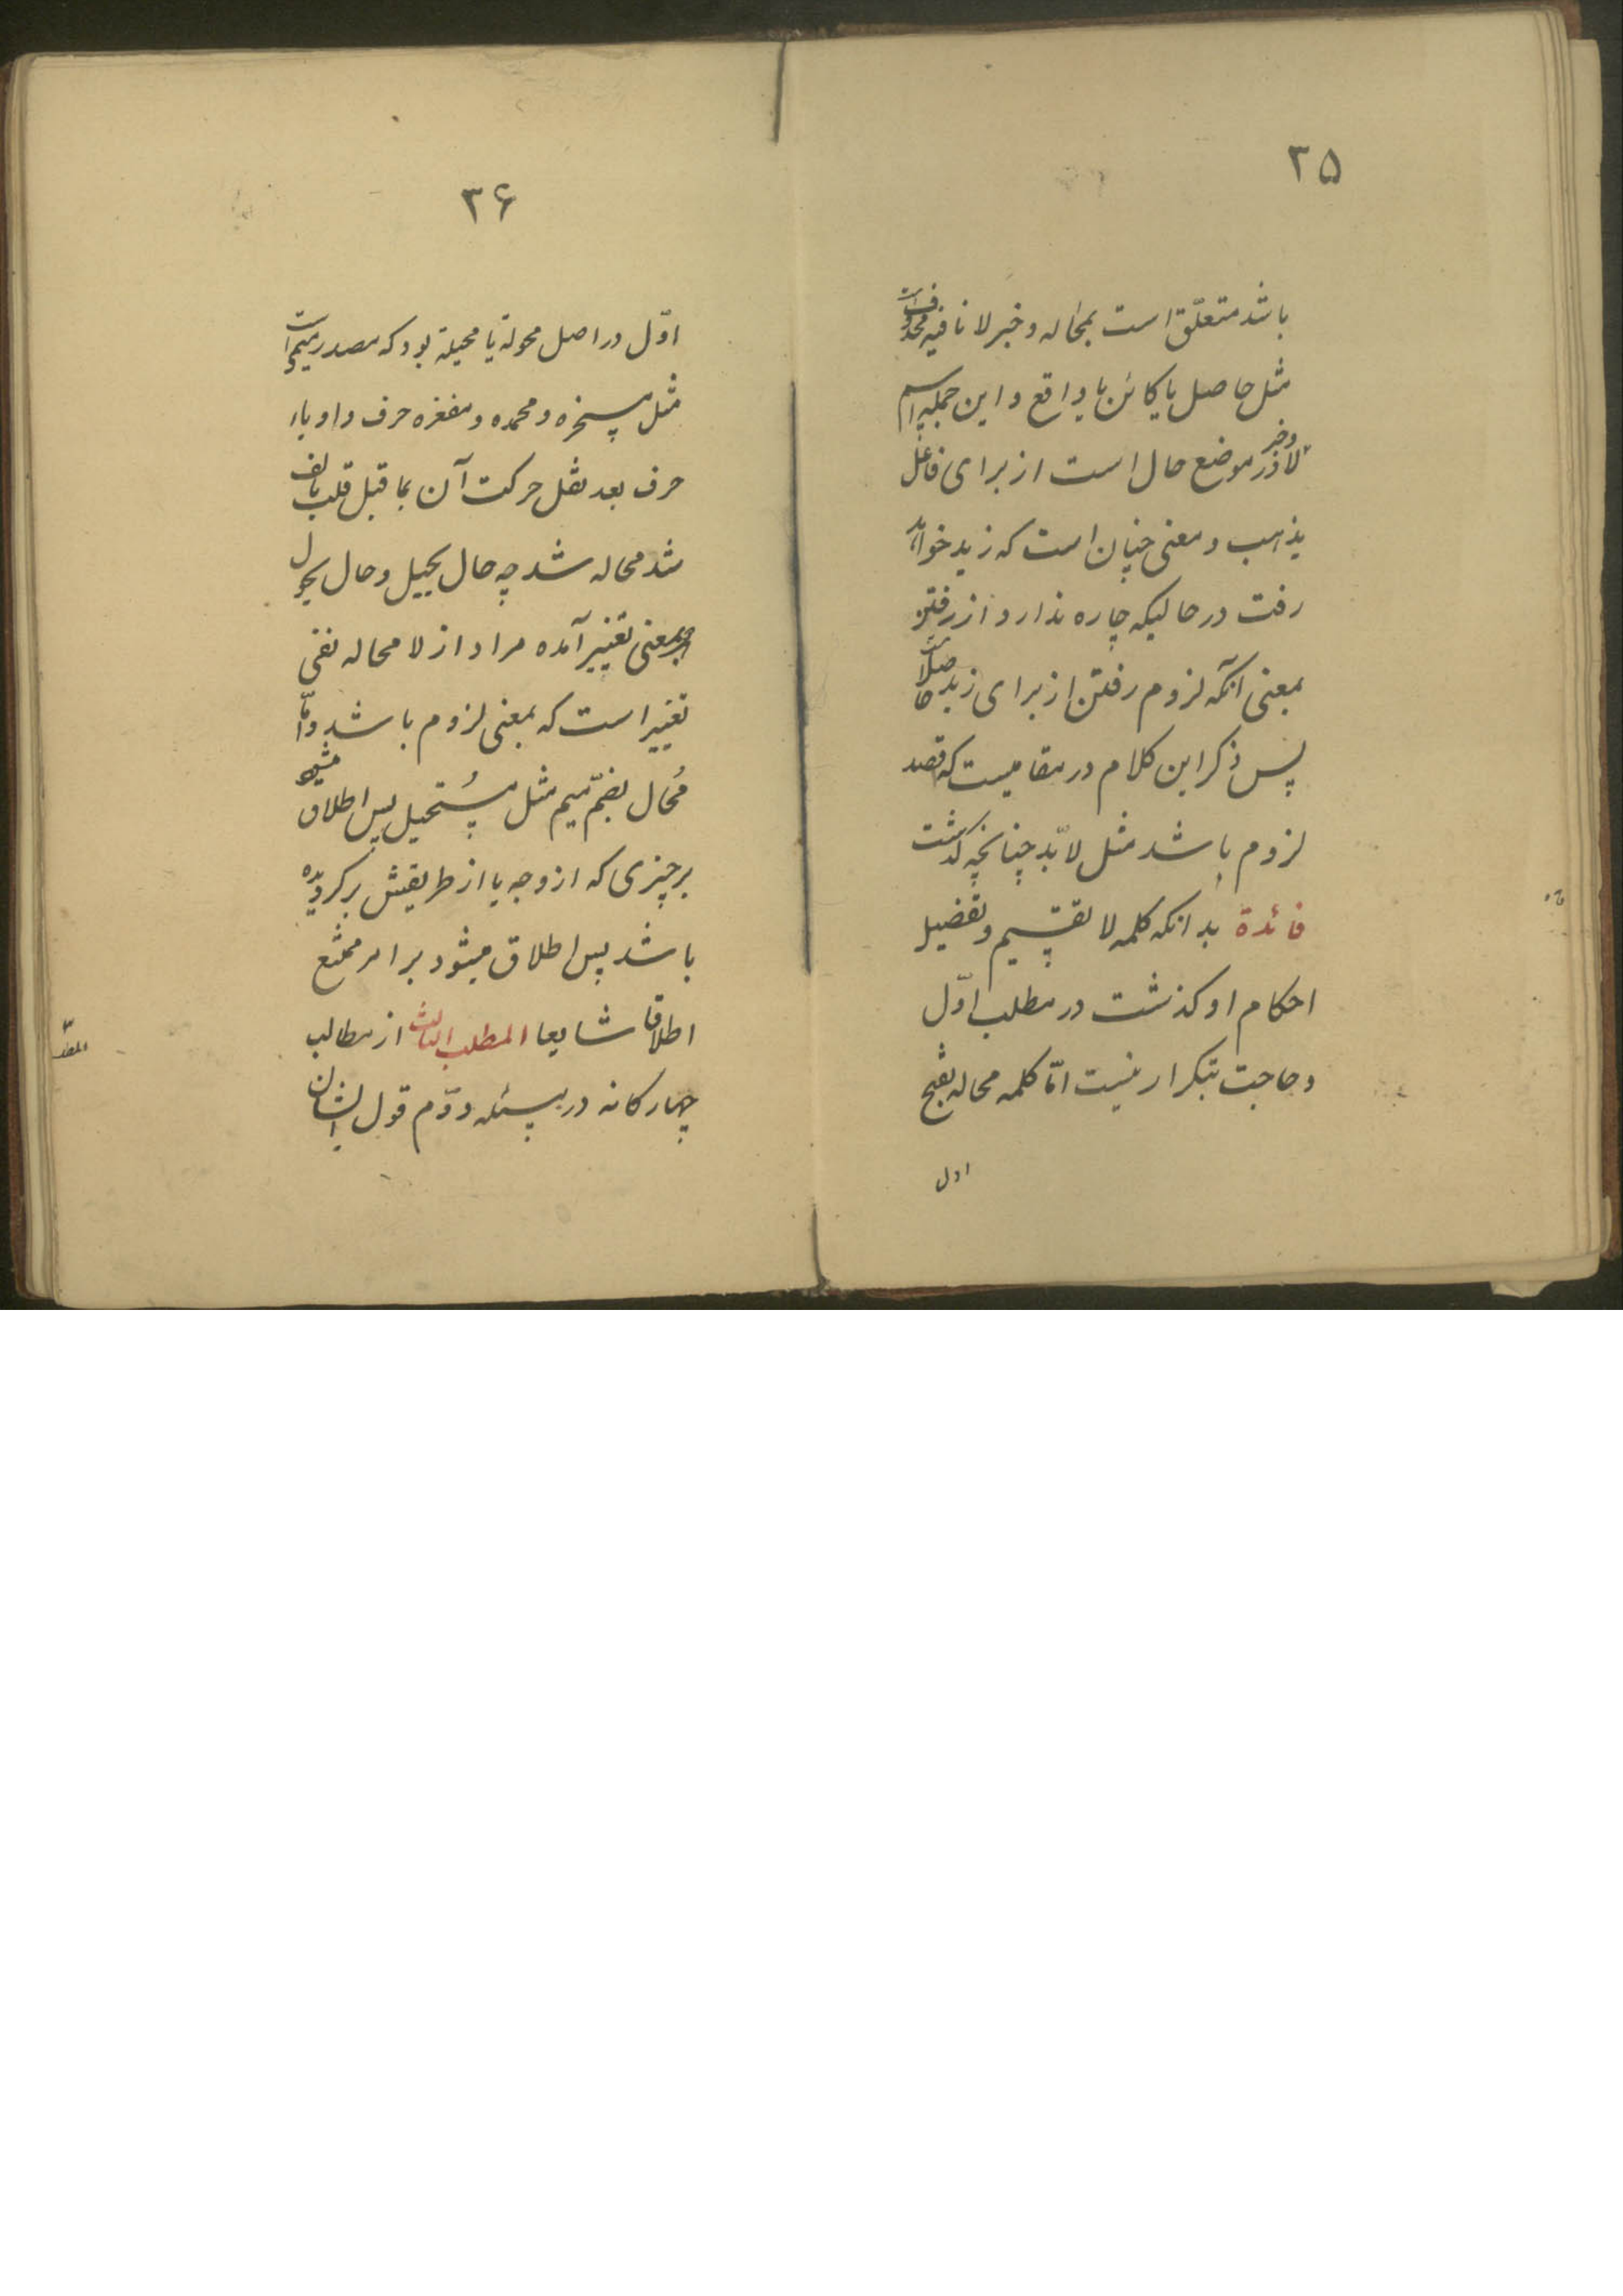 ۳۵
باشد متعلّق است بمحاله و خبر لا نافیه محذوفست
مثل حاصل یا کائن یا واقع و این جمله اسم
و خبر لا در موضع حال است از برای فاعل
یذهب و معنی چنان است که زید خواهد
رفت در حالیکه چاره ندارد از رفتن
بمعنی آنکه لزوم رفتن از برای زید حاصلست
پس ذکر این کلام در مقامیست که قصد
لزوم باشد مثل لابدّ چنانچه گذشت
فائدة بدانکه کلمه لا تقسیم و تفضیل
احکام او کذشت در مطلب اوّل
و حاجت بتکرار نیست امّا کلمه محاله بفتح
اول
۳۶
اوّل در اصل محولة یا محیلة بود که مصدر میمی است
مثل مسخره و محمده و مغفره حرف واو یاء
حرف بعد نقل حرکت آن بما قبل قلب بالف
شد محاله شد چه حال یحیل و حال یحول
بمعنی تغییر آمده مراد از لا محاله نفی
تغییر است که بمعنی لزوم باشد و امّا
مُحال بضمّ میم مثل مُستحیل پس اطلاق میشود
بر چیزی که از وجه یا از طریقش بر کردیده
باشد پس اطلاق میشود بر امر ممتنع
اطلاقا شایعا المطلب الثالث از مطالب
چهار کانه در مسئله دوّم قول ایشان